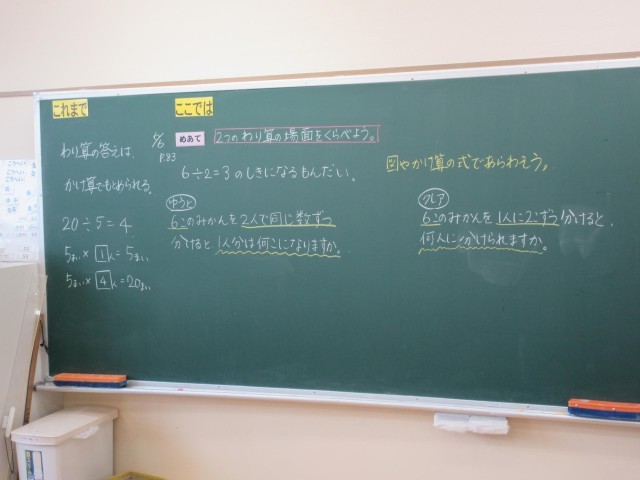 これまで
わり算の答えは、
かけ算でもとめられる。
20÷5=4
5まい×1人=5まい
5まい×4人=20まい
ここでは
P.83
めあて
2つのわり算の場面をくらべよう。
6÷2=3のしきになるもんだい。
図やかけ算の式であらわそう。
ゆうと
6このみかんを2人で同じ数ずつ
分けると1人分は何こになりますか。
クレア
6このみかんを1人に2こずつ分けると、
何人に分けられますか。